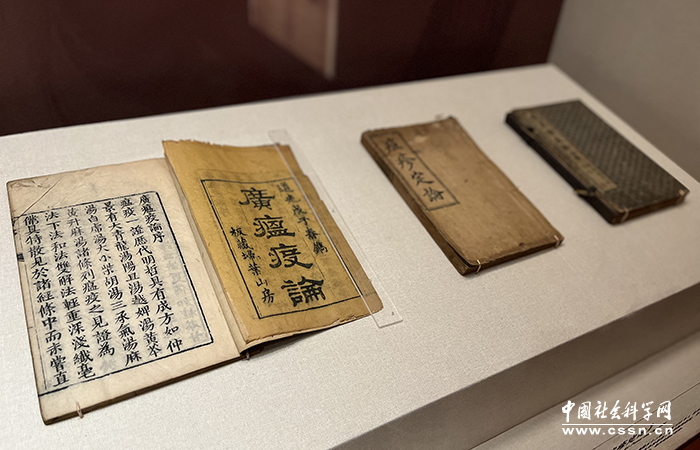 廣瘟疫論序
瘟疫一證歷代明哲具有成方如仲
景有大青龍湯陽旦湯越婢湯黃芩
湯白虎湯大小柴胡湯三承氣湯麻
黃升麻湯諸條列瘟疫之見證為汗
法下法和法雙解法輕重深淺纖毫
備具特散見於諸經條中而未嘗直
道光戊子春鐫
廣瘟疫論
板藏埽葉山房
痘疹定論
中国社会科学网
www.cssn.cn